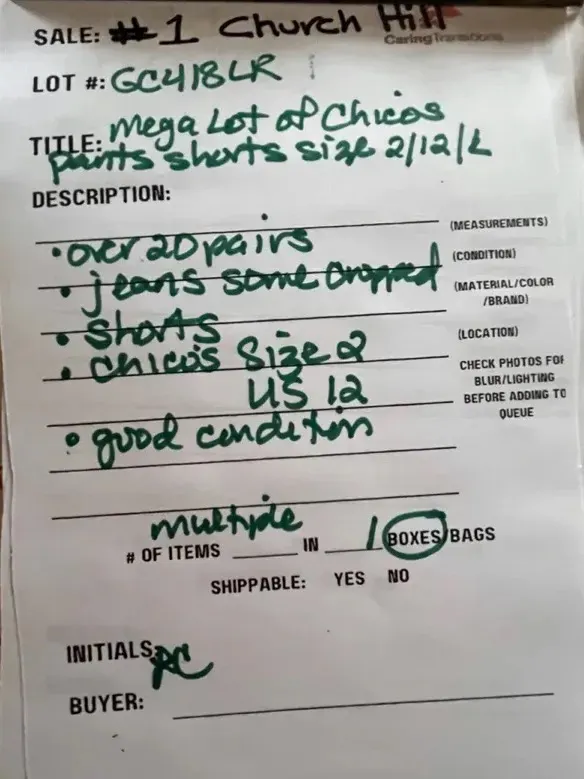 SALE: #1 Church Hill
Caring Transitions
LOT #: GC418LR
TITLE: Mega Lot of Chicos
pants shorts size 2/12/L
DESCRIPTION:
(MEASUREMENTS)
• over 20 pairs
(CONDITION)
• jeans some cropped
(MATERIAL/COLOR
/BRAND)
• shorts
(LOCATION)
• chico's size 2
US 12
CHECK PHOTOS FOR
BLUR/LIGHTING
BEFORE ADDING TO
QUEUE
• good condition
multiple
# OF ITEMS ______ IN ____1 BOXES/BAGS
SHIPPABLE: YES NO
INITIALS: RC
BUYER: